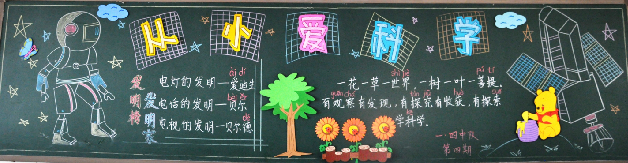 从小爱科学
发明搭
发明家
ài dí
电灯的发明—爱迪生
bèi
电话的发明—贝尔
dé
电视的发明—贝尔德
shì jiè pú tí
一花一草一世界 一树一叶一菩提
有观察有发现,有探究有收获,有探索
学科学.
一.四中队
第四期